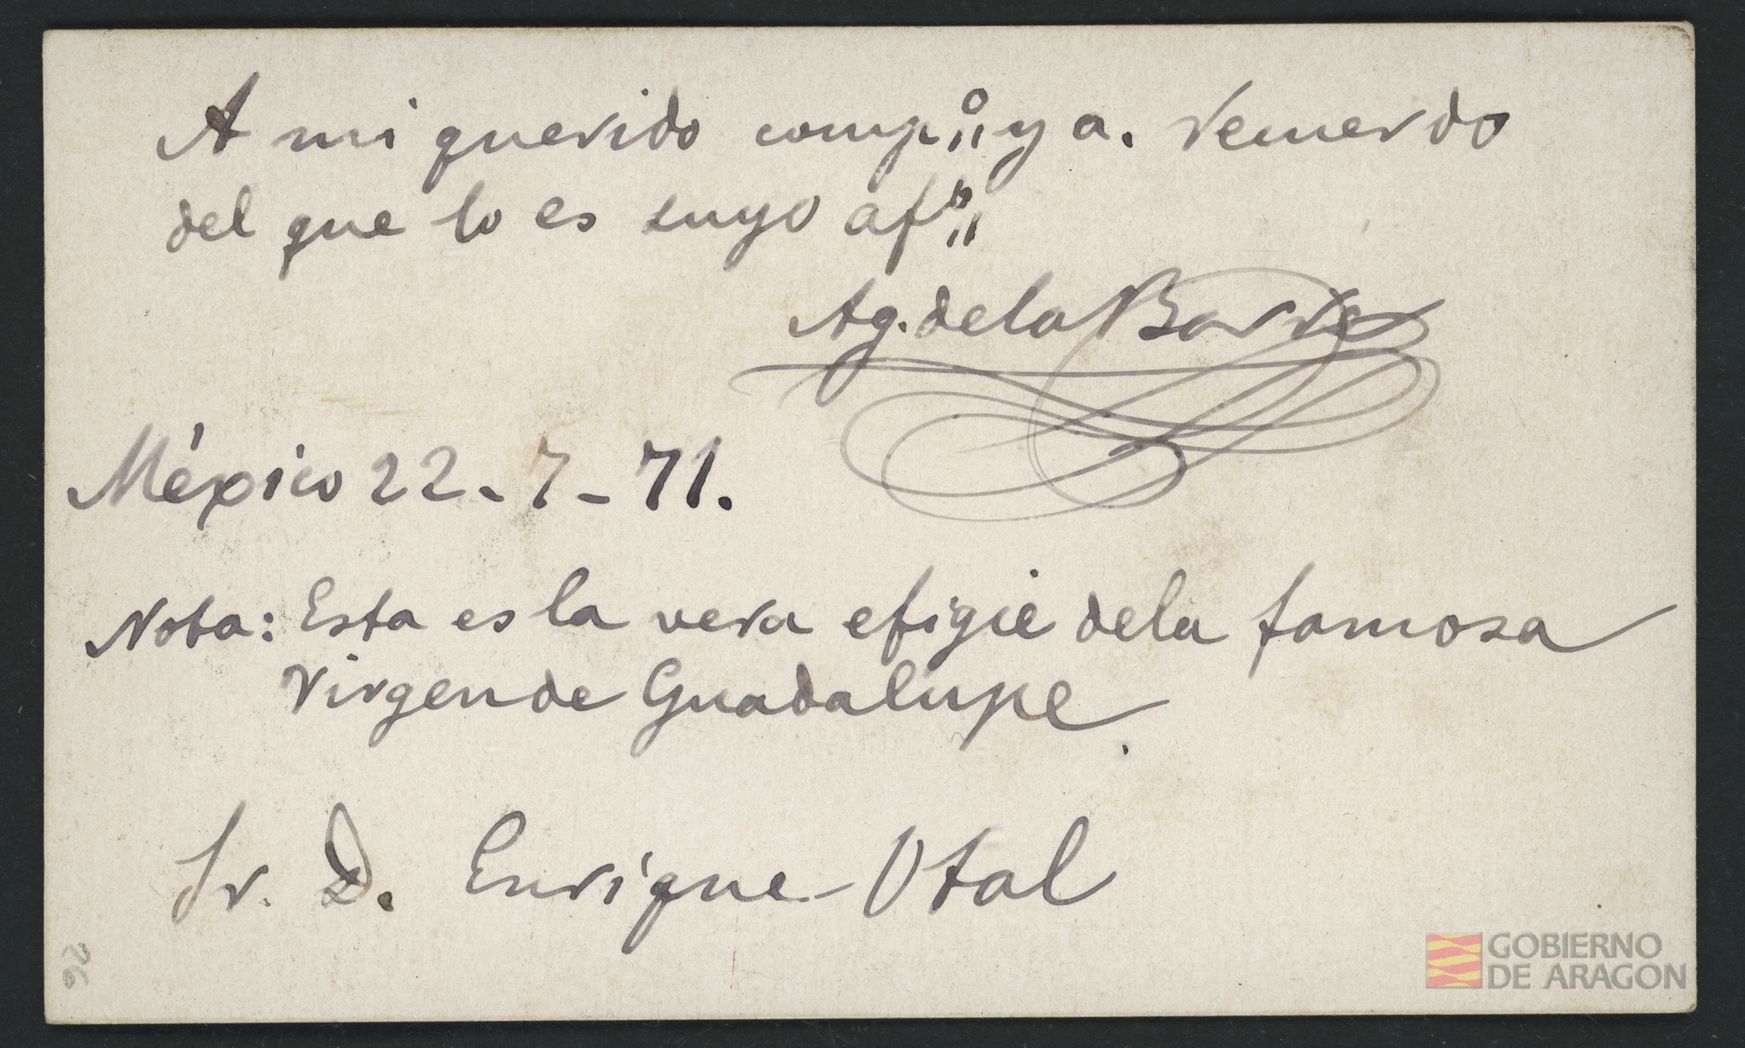 A mi querido comp.º y a. Recuerdo
del que lo es suyo af.º
Ag. de la Barre
México 22 - 7 - 71.
Nota: Esta es la vera efigie de la famosa
Virgen de Guadalupe
Sr. D. Enrique Otal
26
GOBIERNO
DE ARAGON